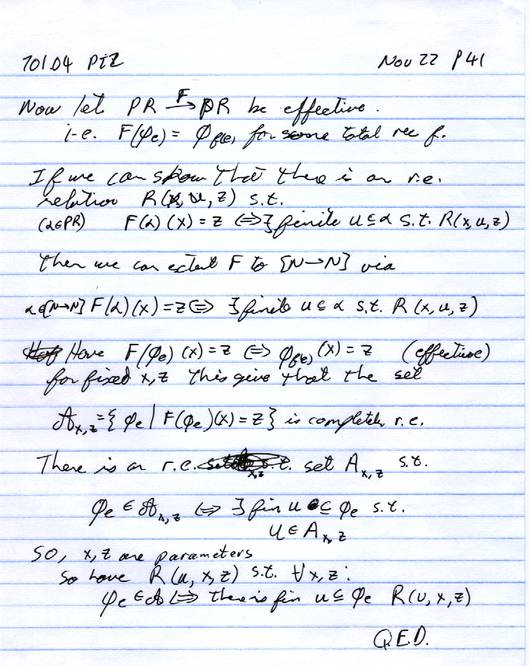 70104 PtZ Nov 22 P41
Now let PR F→ PR be effective.
i-e. F(φe) = φf(e), for some total rec f.
If we can show that there is an r.e.
relation R(x, u, z) s.t.
(α∈PR) F(α)(x) = z ⇔ ∃ finite u ⊆ α s.t. R(x,u,z)
then we can extend F to [N→N] via
α∈[N→N] F(α)(x) = z ⇔ ∃ finite u ⊆ α s.t. R(x,u,z)
Have F(φe)(x) = z ⇔ φf(e)(x) = z (effective)
for fixed x,z this give that the set
𝒜x,z = {φe | F(φe)(x) = z} is completely r.e.
There is an r.e. set Ax,z s.t.
φe ∈ 𝒜x,z ⇔ ∃ fin u ⊆ φe s.t.
u ∈ Ax,z
So, x,z are parameters
So have R(u,x,z) s.t. ∀x,z:
φe ∈ 𝒜 ⇔ there is fin u ⊆ φe R(u,x,z)
Q.E.D.